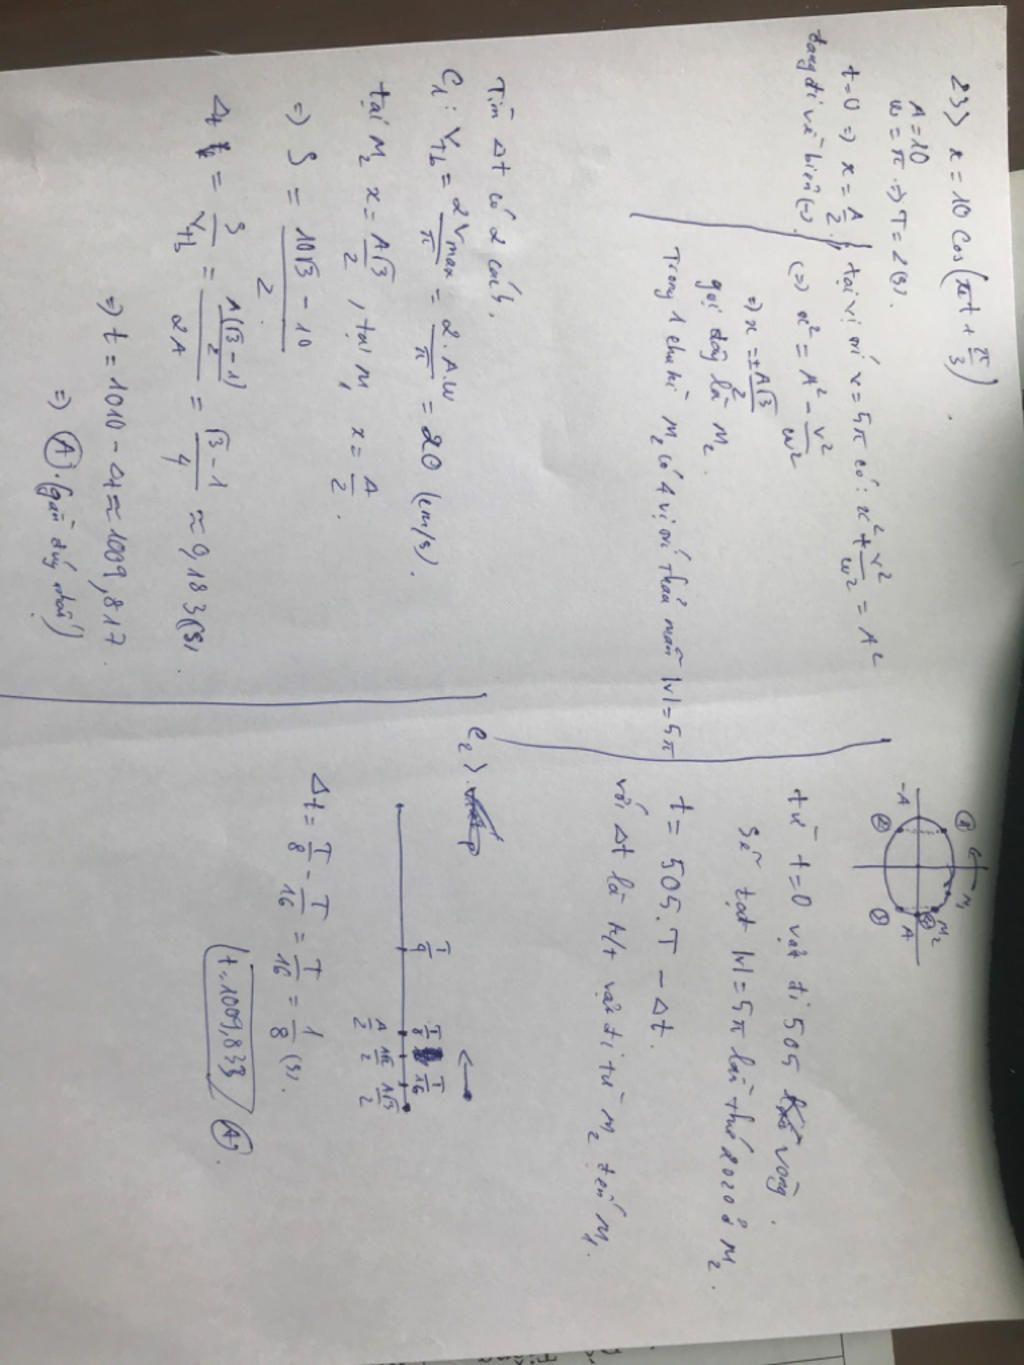 23) x = 10 cos(πt + π/3).
A = 10
ω = π ⇒ T = 2(s).
t=0 ⇒ x = A/2
đang đi về biên (-).
tại vị trí v = 5π có: x² + v²/ω² = A²
(=) x² = A² - v²/ω²
⇒ x = ±A√3/2
gọi đây là M₂.
Trong 1 chu kì M₂ có 4 vị trí thỏa mãn |v| = 5π
-A
A
M₁
M₂
từ t=0 vật đi 505 vòng.
sẽ đạt |v| = 5π lần thứ 2020 ở M₂.
t = 505.T - Δt.
với Δt là k/t vật đi từ M₂ đến M₁.
Tìm Δt có 2 cách.
C₁: Vtb = 2Vmax/π = 2.A.ω/π = 20 (cm/s).
tại M₂ x = A√3/2, tại M₁ x = A/2.
⇒ S = 10√3 - 10/2
Δt = S/Vtb = A(√3 - 1)/2/2A = √3 - 1/4 ≈ 0,183(s).
⇒ t = 1010 - Δt ≈ 1009,817.
⇒ (A). (gần đúng nhất)
C₂).
T/8 T/16
A/2 A√2/2 A√3/2
Δt = T/8 - T/16 = T/16 = 1/8 (s).
t = 1009,833
(A).